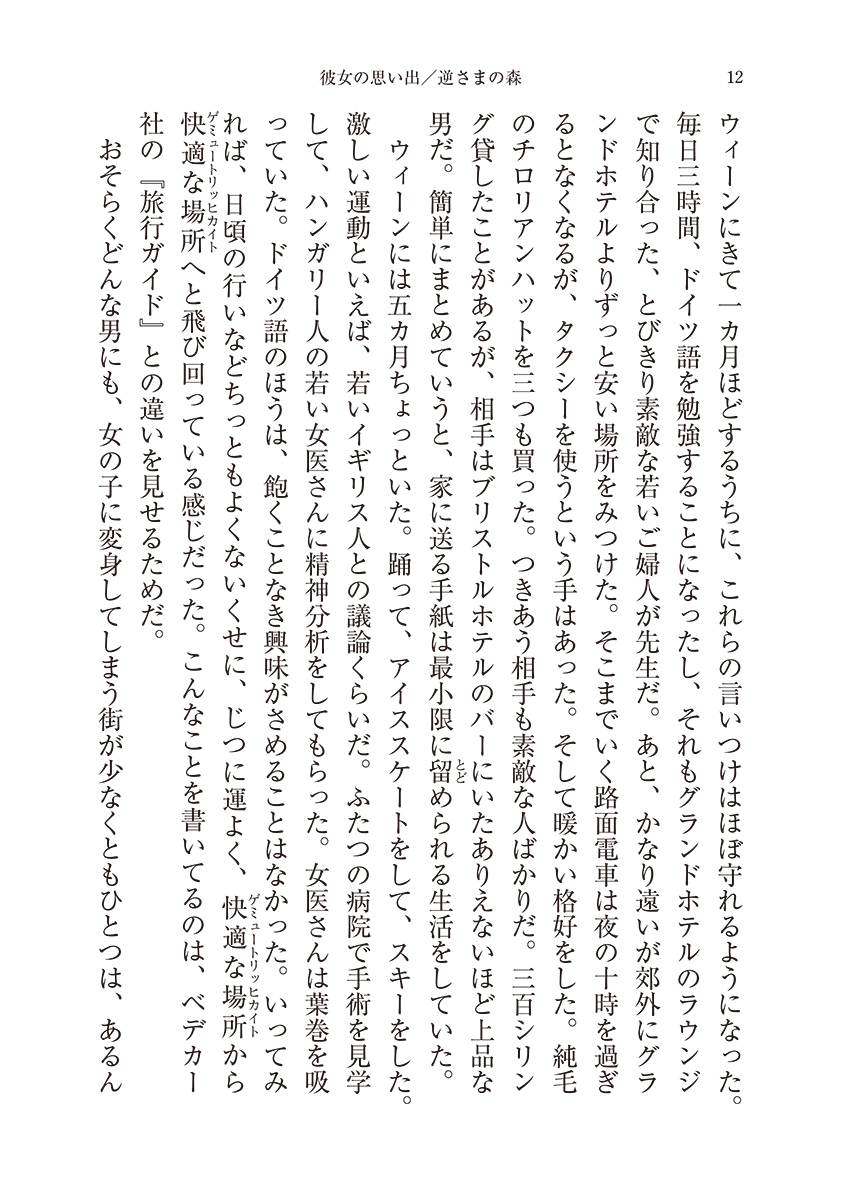 彼女の思い出／逆さまの森
12
ウィーンにきて一カ月ほどするうちに、これらの言いつけはほぼ守れるようになった。
毎日三時間、ドイツ語を勉強することになったし、それもグランドホテルのラウンジ
で知り合った、とびきり素敵な若いご婦人が先生だ。あと、かなり遠いが郊外にグラ
ンドホテルよりずっと安い場所をみつけた。そこまでいく路面電車は夜の十時を過ぎ
るとなくなるが、タクシーを使うという手はあった。そして暖かい格好をした。純毛
のチロリアンハットを三つも買った。つきあう相手も素敵な人ばかりだ。三百シリン
グ貸したことがあるが、相手はブリストルホテルのバーにいたありえないほど上品な
男だ。簡単にまとめていうと、家に送る手紙は最小限に留められる生活をしていた。
とど
ウィーンには五カ月ちょっといた。踊って、アイススケートをして、スキーをした。
激しい運動といえば、若いイギリス人との議論くらいだ。ふたつの病院で手術を見学
して、ハンガリー人の若い女医さんに精神分析をしてもらった。女医さんは葉巻を吸
っていた。ドイツ語のほうは、飽くことなき興味がさめることはなかった。いってみ
れば、日頃の行いなどちっともよくないくせに、じつに運よく、快適な場所から
ゲミュートリッヒカイト
快適な場所へと飛び回っている感じだった。こんなことを書いてるのは、ベデカー
ゲミュートリッヒカイト
社の『旅行ガイド』との違いを見せるためだ。
おそらくどんな男にも、女の子に変身してしまう街が少なくともひとつは、あるん